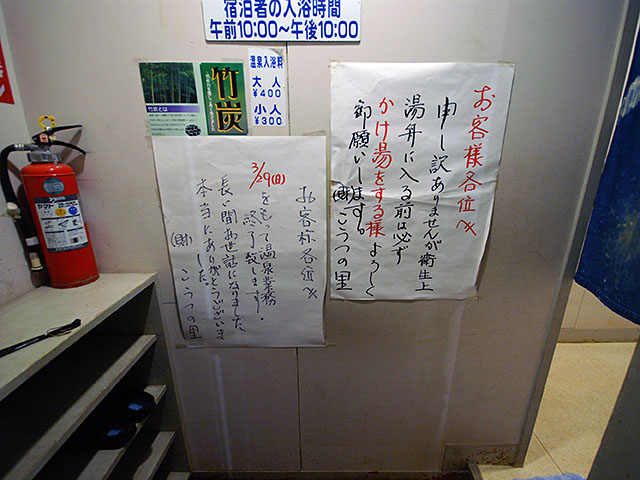 宿泊者の入浴時間
午前10:00〜午後10:00
竹炭とは
竹炭
温泉入浴料
大人
¥400
小人
¥300
お客様各位へ
申し訳ありませんが衛生上
湯舟に入る前は必ず
かけ湯をする様よろしく
御願いします。
(財)こうつの里
お客様各位へ
3/29(日)をもって温泉業務
終了致します。
長い間お世話になりました。
本当にありがとうございました。
(財)こうつの里
ヤマト